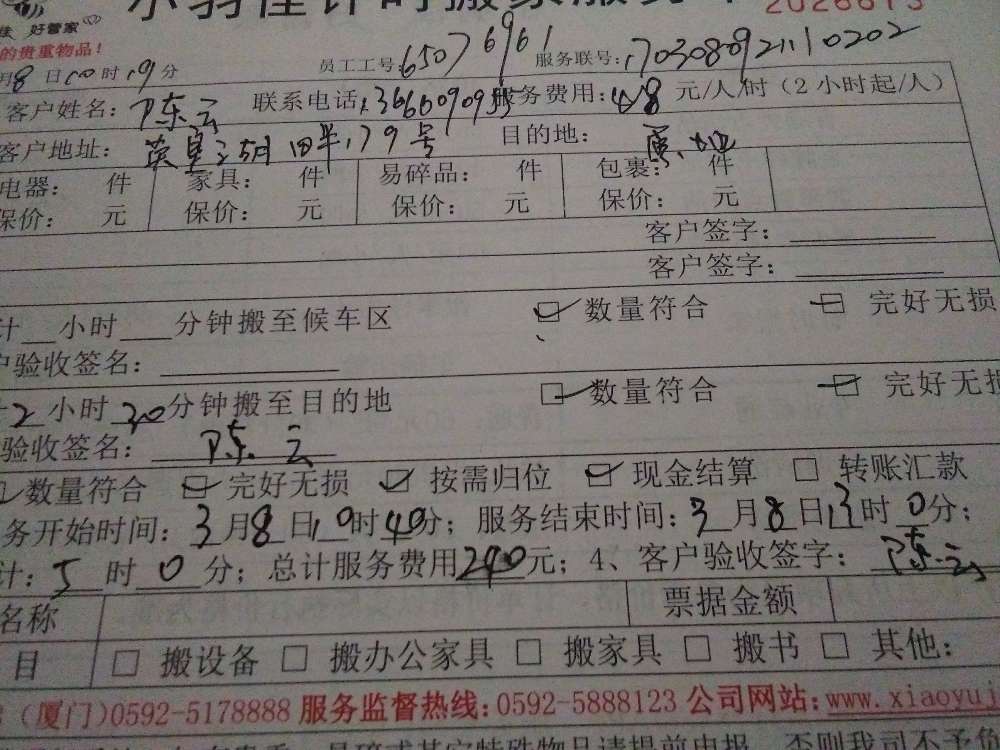 好管家
的贵重物品！
月8日10时19分 员工工号：65076961 服务联号：1703080921110202
客户姓名：陈云 联系电话：服务费用：48元/人/时（2小时起/人）
客户地址： 179号 目的地：
电器： 件 家具： 件 易碎品： 件 包裹： 件
保价： 元 保价： 元 保价： 元 保价： 元
客户签字：
客户签字：
计 小时 分钟搬至候车区 数量符合 完好无损
户验收签名：
计2小时30分钟搬至目的地 数量符合 完好无损
验收签名：陈云
数量符合 完好无损 按需归位 现金结算 转账汇款
务开始时间：3月8日10时40分；服务结束时间：3月8日13时0分；
计：5时0分；总计服务费用240元；4、客户验收签字：陈云
名称 票据金额
目 搬设备 搬办公家具 搬家具 搬书 其他：
（厦门）0592-5178888 服务监督热线：0592-5888123 公司网站：www.xiaoyuj